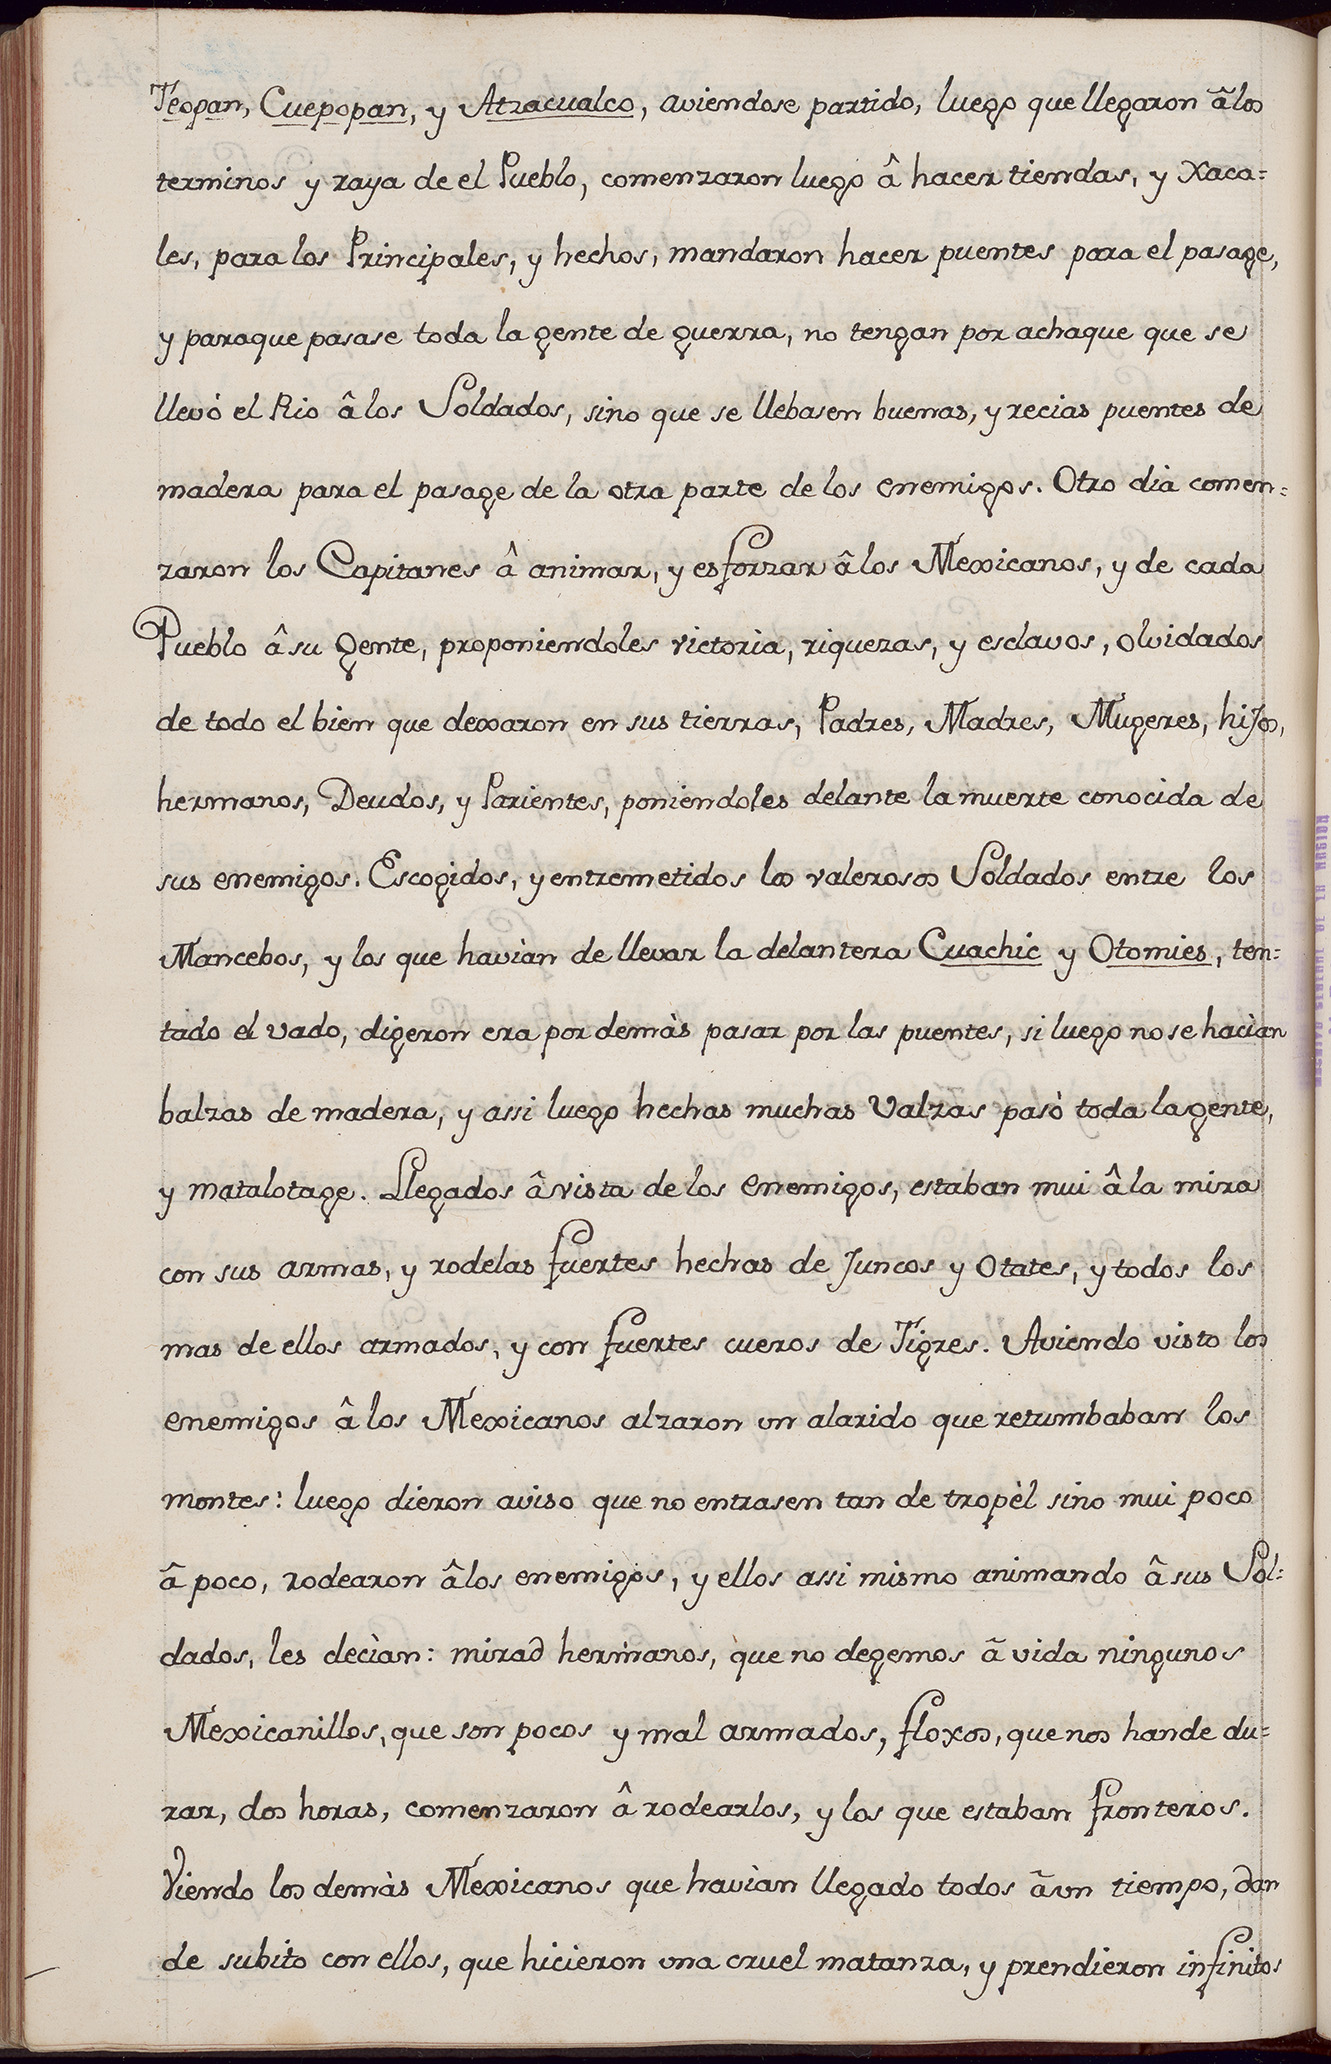 Teopan, Cuepopan, y Atzacualco, aviendose partido, luego que llegaron â los
terminos y raya de el Pueblo, comenzaron luego â hacer tiendas, y Xaca=
les, para los Principales, y hechos, mandaron hacer puentes para el pasage,
y paraque pasase toda la gente de guerra, no tengan por achaque que se
llevó el Rio â los Soldados, sino que se llebasen buenas, y recias puentes de
madera para el pasage de la otra parte de los enemigos. Otro dia comen=
zaron los Capitanes â animar, y esforzar â los Mexicanos, y de cada
Pueblo â su gente, proponiendoles victoria, riquezas, y esclavos, olvidados
de todo el bien que dexaron en sus tierras, Padres, Madres, Mugeres, hijos,
hermanos, Deudos, y Parientes, poniendoles delante la muerte conocida de
sus enemigos. Escogidos, y entremetidos los valerosos Soldados entre los
Mancebos, y los que havian de llevar la delantera Cuachic y Otomies, ten=
tado el vado, digeron era por demàs pasar por las puentes, si luego no se hacìan
balzas de madera, y assi luego hechas muchas Valzas pasò toda la gente,
y matalotage. Llegados â vista de los enemigos, estaban mui â la mira
con sus armas, y rodelas fuertes hechas de Juncos y Otates, y todos los
mas de ellos armados, y con fuertes cueros de Tigres. Aviendo visto los
enemigos â los Mexicanos alzaron un alarido que retumbaban los
montes: luego dieron aviso que no entrasen tan de tropèl sino mui poco
â poco, rodearon â los enemigos, y ellos assi mismo animando â sus Sol=
dados, les decìan: mirad hermanos, que no degemos â vida ningunos
Mexicanillos, que son pocos y mal armados, floxos, que nos hande du=
rar, dos horas, comenzaron â rodearlos, y los que estaban fronteros.
Viendo los demàs Mexicanos que havìan llegado todos â un tiempo, dan
de subito con ellos, que hicieron una cruel matanza, y prendieron infinitos